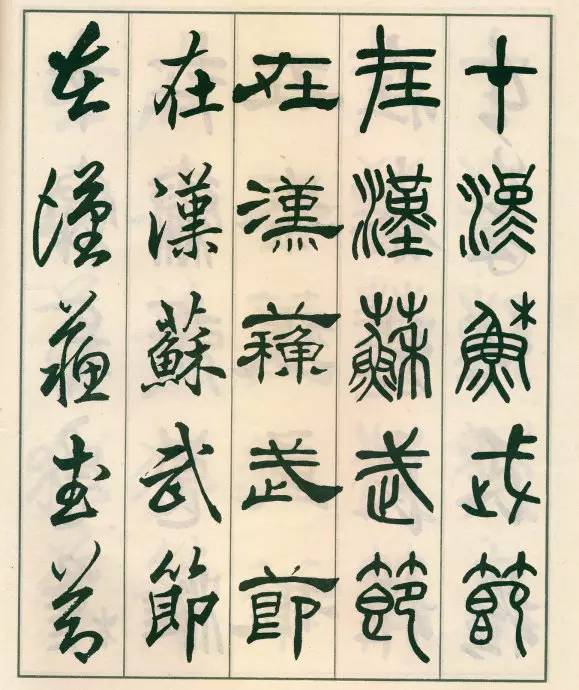 在漢蘇武節
在漢蘇武節
在漢蘇武節
在漢蘇武節
在漢蘇武節